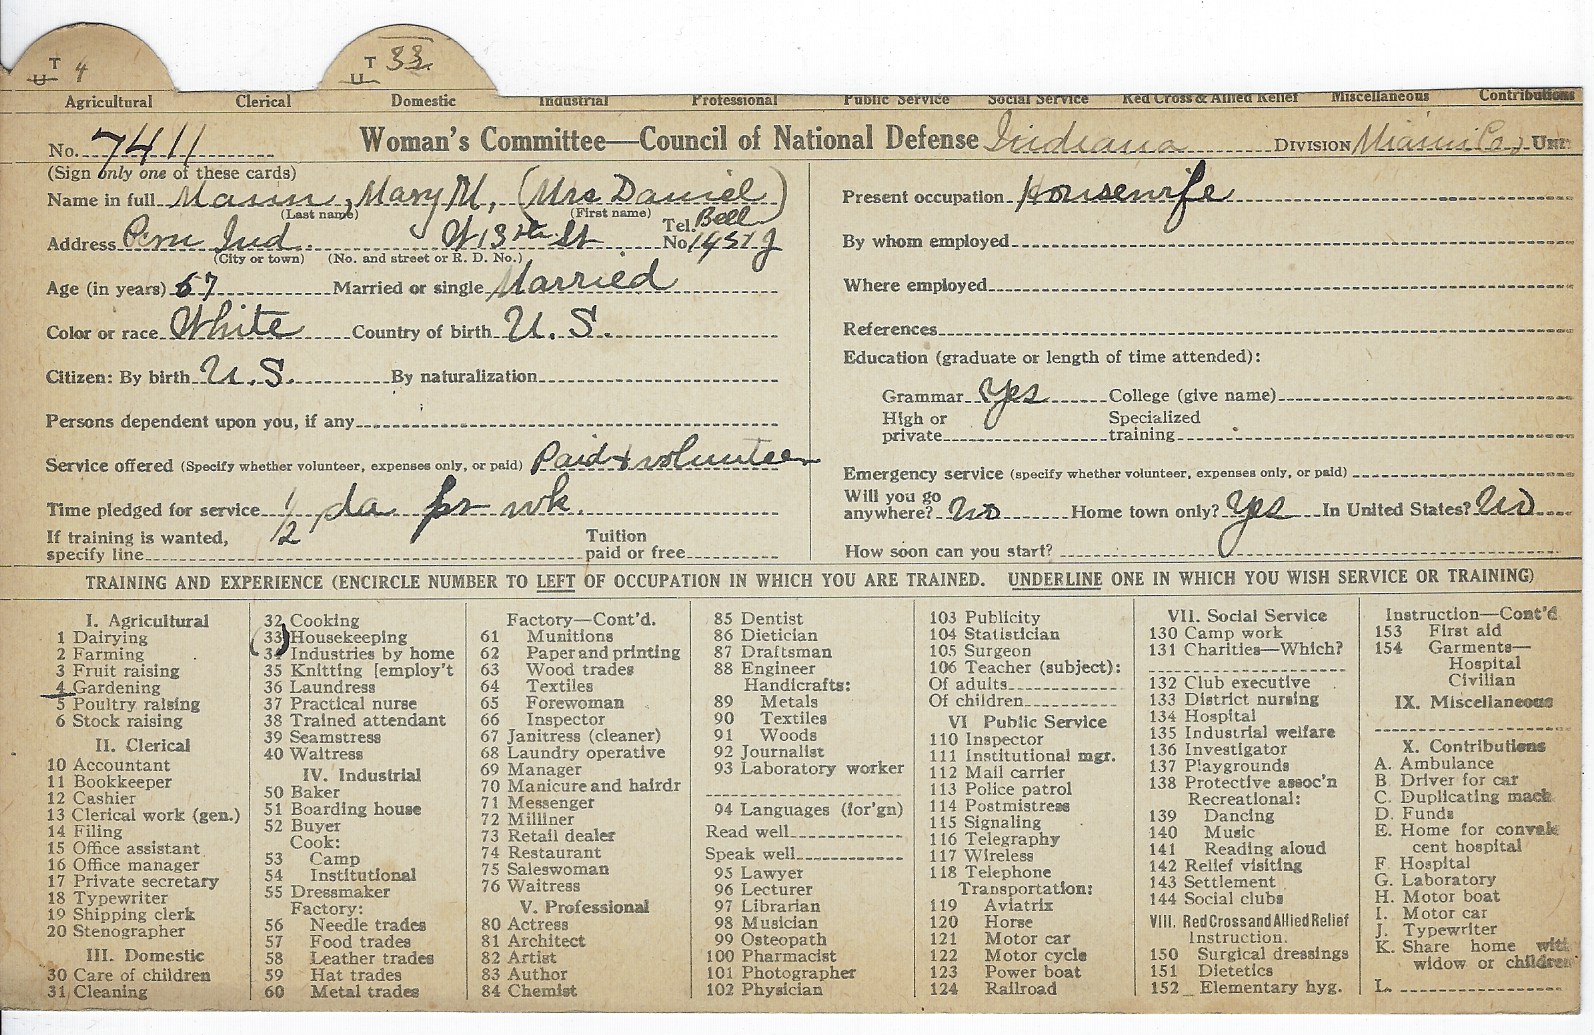 T 4 T 33
U U
Agricultural Clerical Domestic Industrial Professional Public Service Social Service Red Cross & Allied Relief Miscellaneous Contributions
No. 7411 Woman's Committee—Council of National Defense Indiana DIVISION Miami Co, UNIT
(Sign only one of these cards)
Name in full Mann, Mary M, (Mrs Daniel)
(Last name) (First name)
Address Peru Ind. W 13th St Tel. No. Bell 1451 J
(City or town) (No. and street or R. D. No.)
Age (in years) 57 Married or single Married
Color or race White Country of birth U.S.
Citizen: By birth U.S. By naturalization
Persons dependent upon you, if any
Service offered (Specify whether volunteer, expenses only, or paid) Paid + volunteer
Time pledged for service 1/2 da pr wk.
If training is wanted, specify line Tuition paid or free
Present occupation Housewife
By whom employed
Where employed
References
Education (graduate or length of time attended):
Grammar Yes College (give name)
High or private Specialized training
Emergency service (specify whether volunteer, expenses only, or paid)
Will you go anywhere? No Home town only? Yes In United States? No
How soon can you start?
TRAINING AND EXPERIENCE (ENCIRCLE NUMBER TO LEFT OF OCCUPATION IN WHICH YOU ARE TRAINED. UNDERLINE ONE IN WHICH YOU WISH SERVICE OR TRAINING)
I. Agricultural
1 Dairying
2 Farming
3 Fruit raising
4 Gardening
5 Poultry raising
6 Stock raising
II. Clerical
10 Accountant
11 Bookkeeper
12 Cashier
13 Clerical work (gen.)
14 Filing
15 Office assistant
16 Office manager
17 Private secretary
18 Typewriter
19 Shipping clerk
20 Stenographer
III. Domestic
30 Care of children
31 Cleaning
32 Cooking
33 Housekeeping
34 Industries by home
35 Knitting [employ't
36 Laundress
37 Practical nurse
38 Trained attendant
39 Seamstress
40 Waitress
IV. Industrial
50 Baker
51 Boarding house
52 Buyer
Cook:
53 Camp
54 Institutional
55 Dressmaker
Factory:
56 Needle trades
57 Food trades
58 Leather trades
59 Hat trades
60 Metal trades
Factory—Cont'd.
61 Munitions
62 Paper and printing
63 Wood trades
64 Textiles
65 Forewoman
66 Inspector
67 Janitress (cleaner)
68 Laundry operative
69 Manager
70 Manicure and hairdr
71 Messenger
72 Milliner
73 Retail dealer
74 Restaurant
75 Saleswoman
76 Waitress
V. Professional
80 Actress
81 Architect
82 Artist
83 Author
84 Chemist
85 Dentist
86 Dietician
87 Draftsman
88 Engineer
Handicrafts:
89 Metals
90 Textiles
91 Woods
92 Journalist
93 Laboratory worker
94 Languages (for'gn)
Read well
Speak well
95 Lawyer
96 Lecturer
97 Librarian
98 Musician
99 Osteopath
100 Pharmacist
101 Photographer
102 Physician
103 Publicity
104 Statistician
105 Surgeon
106 Teacher (subject):
Of adults
Of children
VI Public Service
110 Inspector
111 Institutional mgr.
112 Mail carrier
113 Police patrol
114 Postmistress
115 Signaling
116 Telegraphy
117 Wireless
118 Telephone
Transportation:
119 Aviatrix
120 Horse
121 Motor car
122 Motor cycle
123 Power boat
124 Railroad
VII. Social Service
130 Camp work
131 Charities—Which?
132 Club executive
133 District nursing
134 Hospital
135 Industrial welfare
136 Investigator
137 Playgrounds
138 Protective assoc'n
Recreational:
139 Dancing
140 Music
141 Reading aloud
142 Relief visiting
143 Settlement
144 Social clubs
VIII. Red Cross and Allied Relief
Instruction.
150 Surgical dressings
151 Dietetics
152 Elementary hyg.
Instruction—Cont'd
153 First aid
154 Garments—
Hospital
Civilian
IX. Miscellaneous
X. Contributions
A. Ambulance
B. Driver for car
C. Duplicating mach
D. Funds
E. Home for convales
cent hospital
F. Hospital
G. Laboratory
H. Motor boat
I. Motor car
J. Typewriter
K. Share home with
widow or children
L.